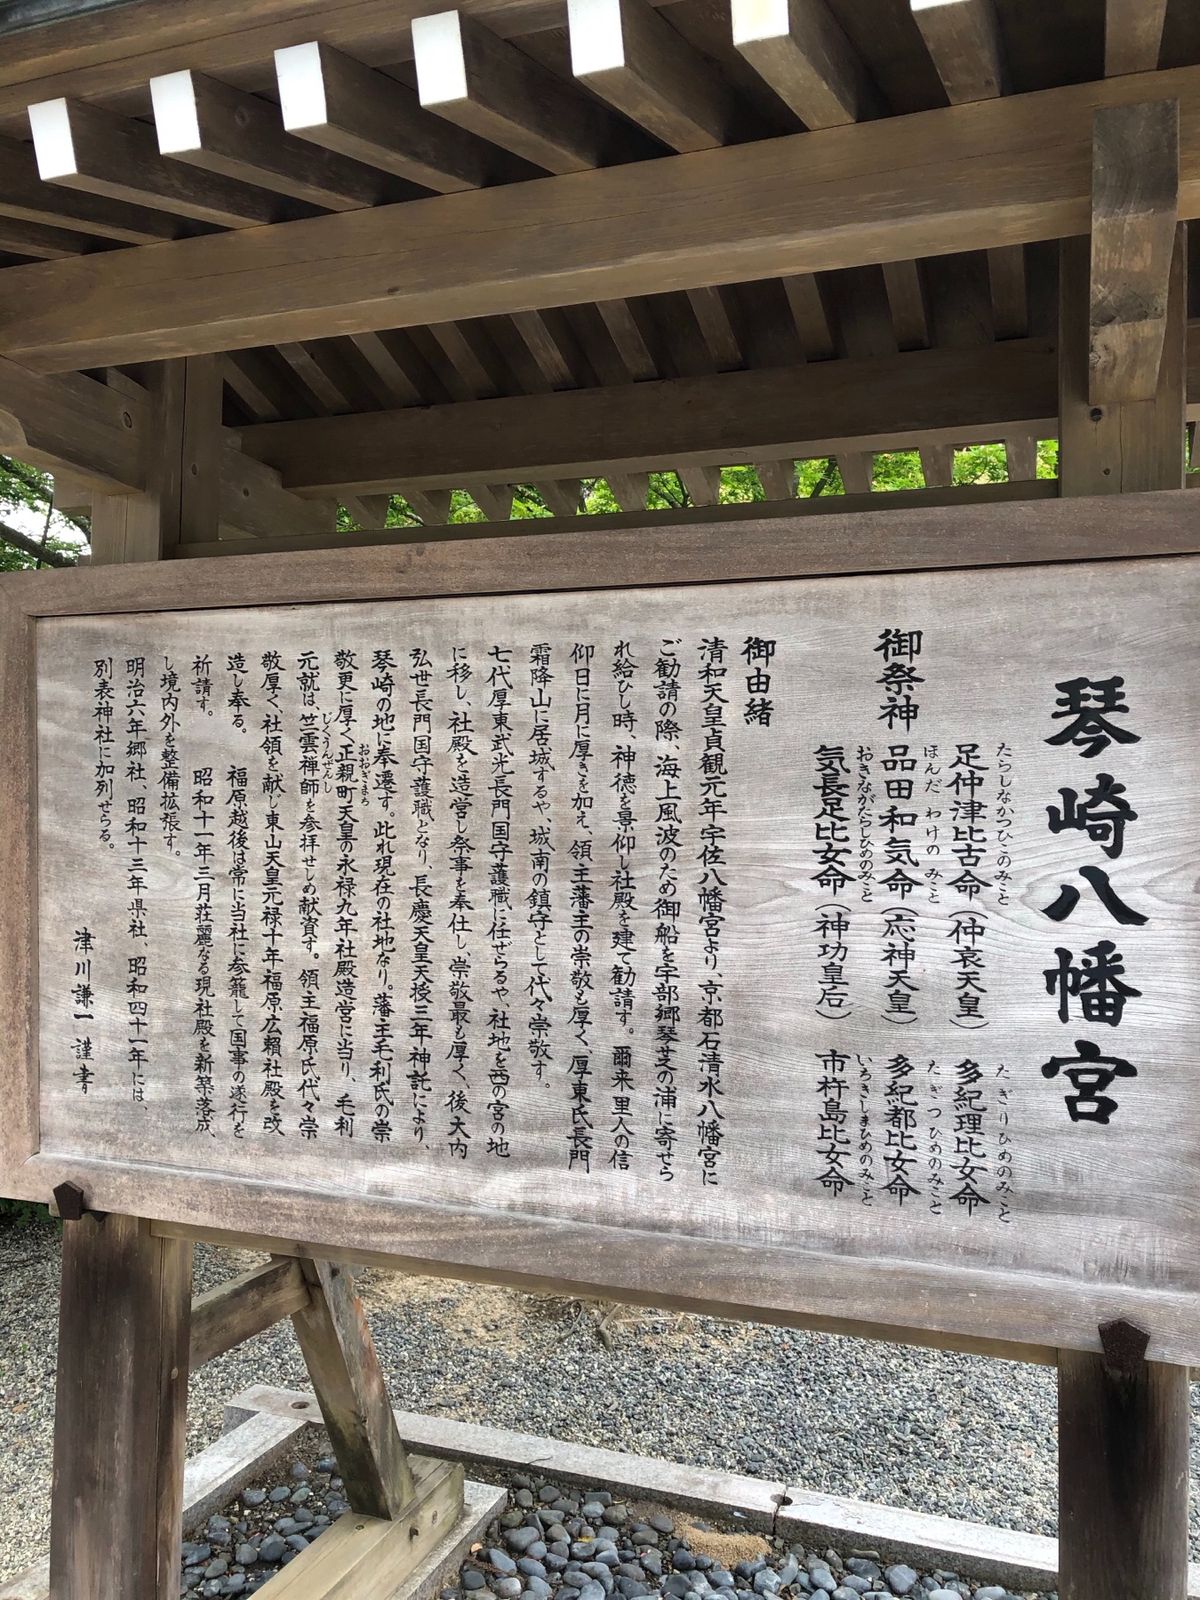 琴崎八幡宮
たらしなかつひこのみこと
足仲津比古命（仲哀天皇）
たぎりひめのみこと
多紀理比女命
御祭神
ほんだ わけの みこと
品田和気命（応神天皇）
たぎつひめのみこと
多紀都比女命
おきながたらしひめのみこと
気長足比女命（神功皇后）
いちきしまひめのみこと
市杵島比女命
御由緒
清和天皇貞観元年宇佐八幡宮より、京都石清水八幡宮に
ご勧請の際、海上風波のため御船を宇部郷琴芝の浦に寄せら
れ給ひし時、神徳を景仰し社殿を建て勧請す。爾来里人の信
仰日に月に厚きを加え、領主藩主の崇敬も厚く、厚東氏長門
霜降山に居城するや、城南の鎮守として代々崇敬す。
七代厚東武光長門国守護職に任ぜらるや、社地を西の宮の地
に移し、社殿を造営し祭事を奉仕し、崇敬最も厚く、後大内
弘世長門国守護職となり、長慶天皇天授三年神託により、
琴崎の地に奉遷す。此れ現在の社地なり。藩主毛利氏の崇
敬更に厚く正親町天皇の永禄九年社殿造営に当り、毛利
おおぎまち
元就は、竺雲禅師を参拝せしめ献資す。領主福原氏代々崇
じくうんぜんし
敬厚く、社領を献じ東山天皇元禄十年福原広頼社殿を改
造し奉る。 福原越後は常に当社に参籠して国事の遂行を
祈請す。 昭和十一年三月荘麗なる現社殿を新築落成、
し境内外を整備拡張す。
明治六年郷社、昭和十三年県社、昭和四十一年には、
別表神社に加列せらる。
津川謙一 謹書